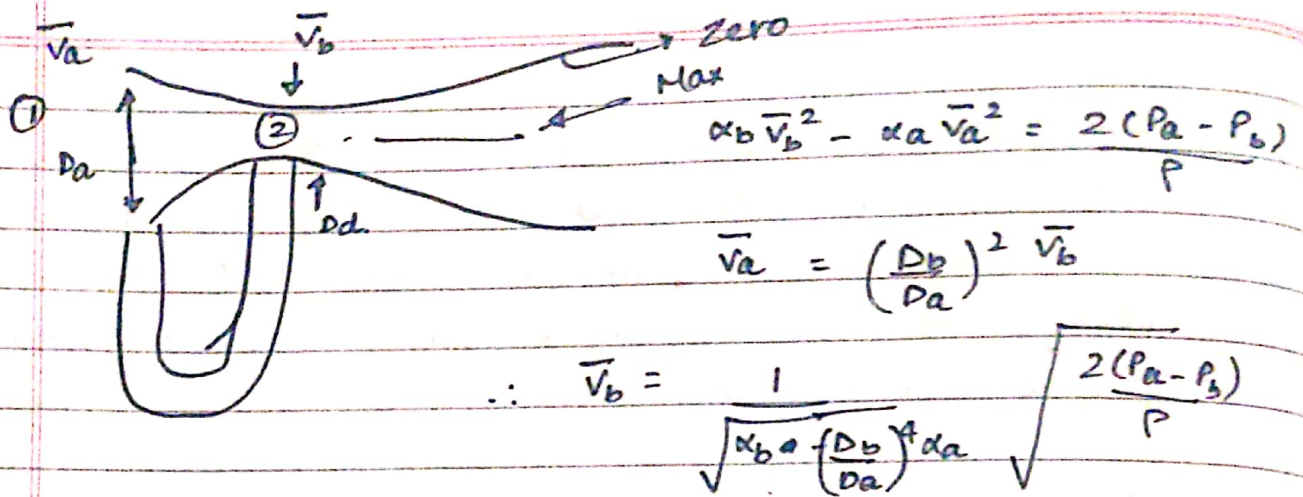 V̅a V̅b → Zero
Max
①
②
Da
Dd.
αb V̅b² - αa V̅a² = 2(Pa - Pb) / ρ
V̅a = (Db/Da)² V̅b
∴ V̅b = 1 / √(αb - (Db/Da)⁴ αa) √(2(Pa - Pb) / ρ)